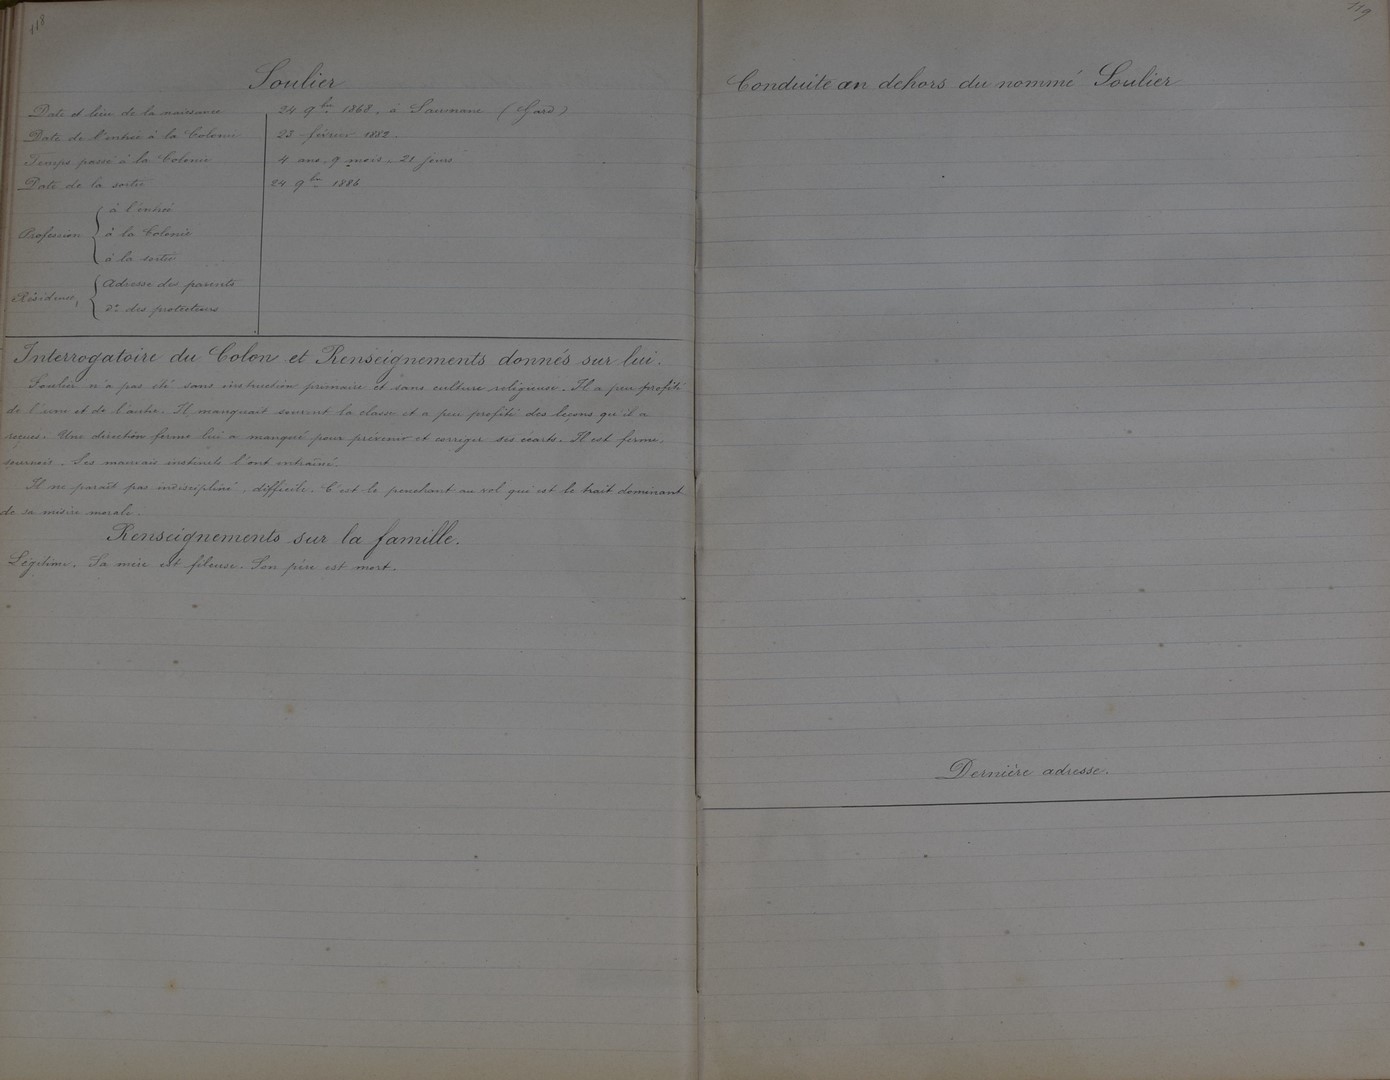 118
Soulier
Date et lieu de la naissance 24 9bre 1868, à Saumane (Gard)
Date de l'entrée à la Colonie 23 février 1882.
Temps passé à la Colonie 4 ans. 9 mois. 21 jours
Date de la sortie 24 9bre 1886
Profession à l'entrée
à la Colonie
à la sortie
Résidence, Adresse des parents
do des protecteurs
Interrogatoire du Colon et Renseignements donnés sur lui.
Soulier n'a pas été sans instruction primaire et sans culture religieuse. Il a peu profité
de l'une et de l'autre. Il manquait souvent la classe et a peu profité des leçons qu'il a
reçues. Une direction ferme lui a manqué pour prévenir et corriger ses écarts. Il est fermé,
sournois. Ses mauvais instincts l'ont entraîné.
Il ne paraît pas indiscipliné, difficile. C'est le penchant au vol qui est le trait dominant
de sa misère morale.
Renseignements sur la famille.
Légitime. Sa mère est fileuse. Son père est mort.
119
Conduite en dehors du nommé Soulier
Dernière adresse.